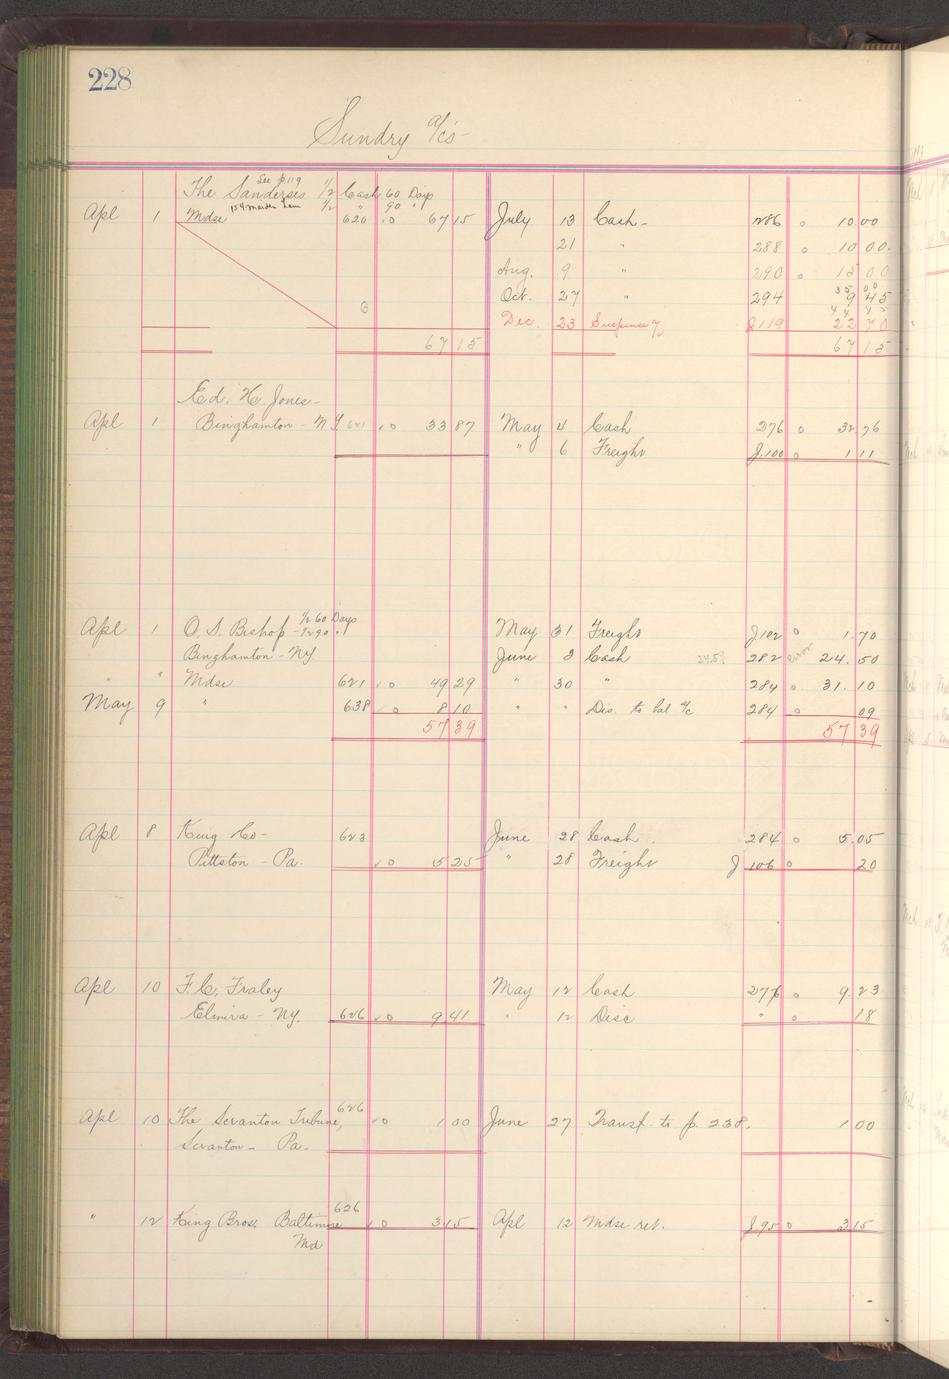 228
Sundry a/cs
See p119
The Sanderses 1/2 Cash 60 Days
154 Maiden Lane 1/2 " 90 "
Apl 1 Mdse 620 67 15 July 13 Cash 286 10 00
21 " 288 10 00
Aug. 9 " 290 15 00
35 00
Oct. 27 " 294 9 45
44 45
Dec. 23 Suspense a/c J119 22 70
67 15 67 15
Ed. H. Jones
Apl 1 Binghamton - N Y 621 33 87 May 4 Cash 276 32.76
" 6 Freight J.100 1 11
1/2 60 Days
Apl 1 O. S. Bishop - 1/2 90 " May 31 Freight J102 1.70
Binghamton - NY. June 3 Cash 24.59 282 error 24.50
" " Mdse 621 49 29 " 30 " 284 31.10
May 9 " 638 8 10 " " Dis. to bal a/c 284 09
57 39 57 39
Apl 8 King Co - 623 June 28 Cash 284 5.05
Pittston - Pa. 5 25 " 28 Freight J 106 20
Apl 10 F. C. Fraley May 12 Cash 276 9.23
Elmira - NY. 626 9 41 " 12 Disc " 18
626
Apl 10 The Scranton Tribune, 1 00 June 27 Transf. to p. 238. 1 00
Scranton - Pa.
626
" 12 King Bros. Baltimore 3 15 Apl 12 Mdse ret. J.95 3 15
Md